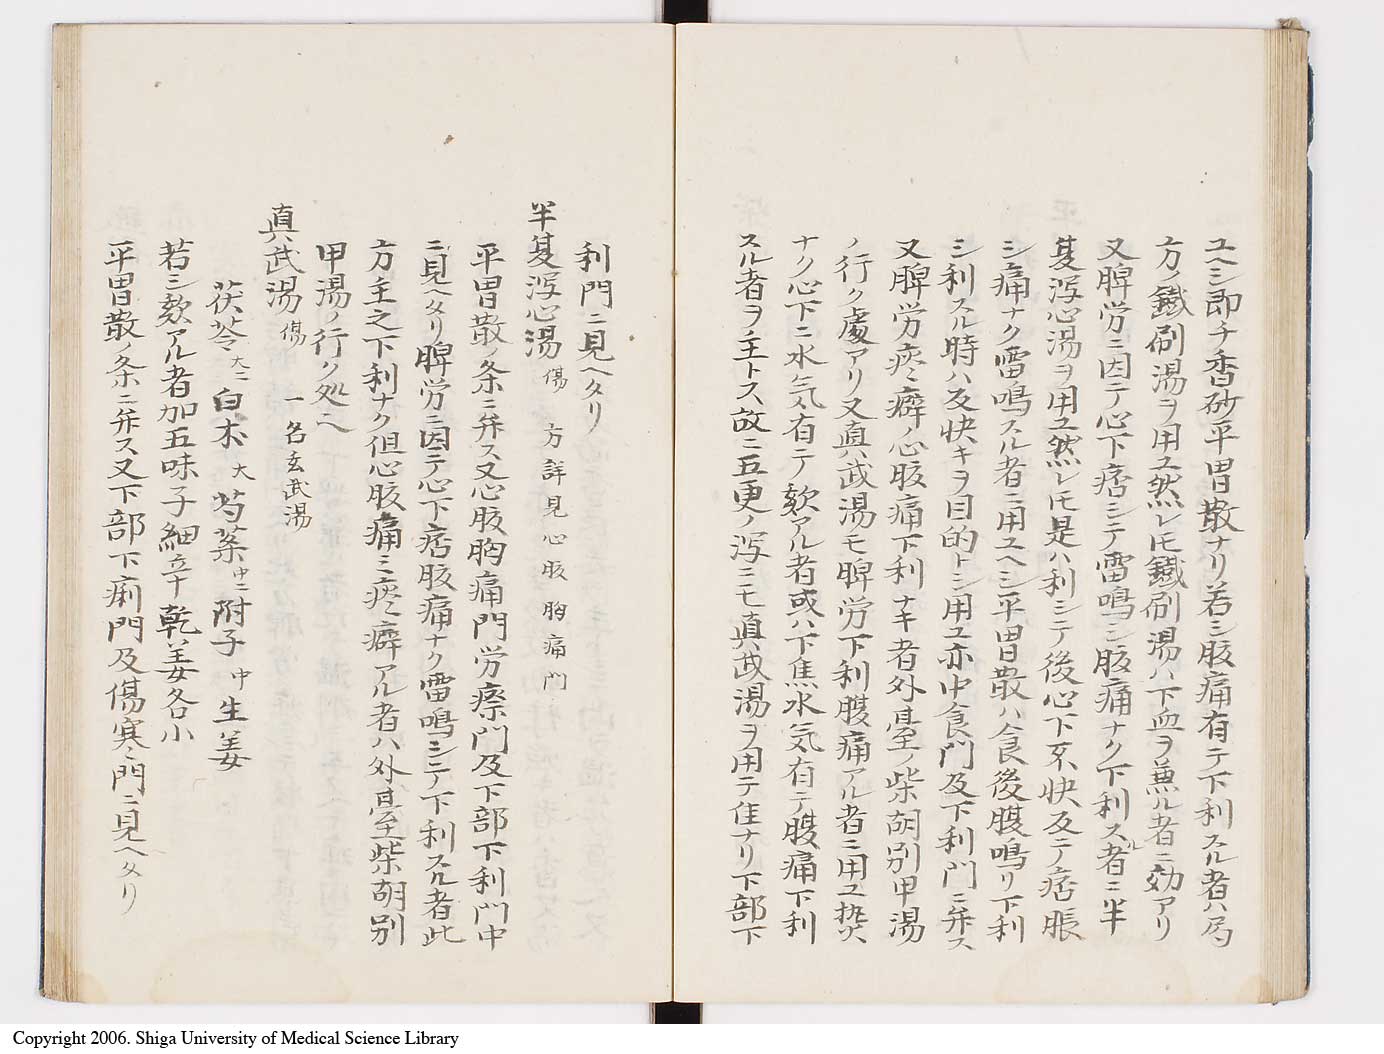 ユヘシ即チ香砂平胃散ナリ若シ腹痛有テ下利スル者ハ局
方ノ鐵刷湯ヲ用ユ然レ𪜈鐵刷湯ハ下血ヲ兼ル者ニ効アリ
又脾労ニ因テ心下痞シテ雷鳴シ腹痛ナク下利スル者ニ半
夏瀉心湯ヲ用ユ然レ𪜈是ハ利シテ後心下不快及テ痞脹
シ痛ナク雷鳴スル者ニ用ユヘシ平胃散ハ食後腹鳴リ下利
シ利スル時ハ反快キヲ目的トシ用ユ亦中食門及下利門ニ弁ス
又脾労痃癖ノ心腹痛下利ナキ者外臺ノ柴胡別甲湯
ノ行ク處アリ又真武湯モ脾労下利腹痛アル者ニ用ユ熱
ナク心下ニ水気有テ欬アル者或ハ下焦水気有テ腹痛下利
スル者ヲ主トス故ニ五更ノ瀉ニモ真武湯ヲ用テ佳ナリ下部下
利門ニ見ヘタリ
半夏瀉心湯 傷 方詳見心腹胸痛門
平胃散ノ条ニ弁ス又心腹胸痛門労瘵門及下部下利門中
ニ見ヘタリ脾労ニ因テ心下痞腹痛ナク雷鳴シテ下利スル者此
方主之下利ナク但心腹痛ミ痃癖アル者ハ外臺柴胡別
甲湯ノ行ク処ヘ
真武湯 傷 一名玄武湯
茯苓 大二 白朮 大 芍薬 中二 附子 中 生姜
若シ欬アル者加五味子細辛乾姜各小
平胃散ノ条ニ弁ス又下部下痢門及傷寒門ニ見ヘタリ
Copyright 2006. Shiga University of Medical Science Library